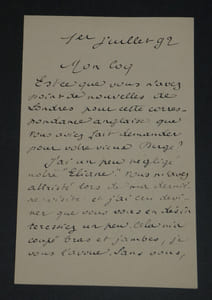 1er juillet 92
Mon coq
Est-ce que vous n'avez
point de nouvelles de
Londres pour cette corres-
pondance anglaise que
vous aviez fait demander
pour votre vieux Bergé?
J'ai un peu négligé
notre "Eliane". Vous m'avez
attristé lors de ma derniè
re visite et j'ai cru devi-
ner que vous vous en désin
téressiez un peu. Cela m'a
coupé bras et jambes, je
vous l'avoue. Sans vous,